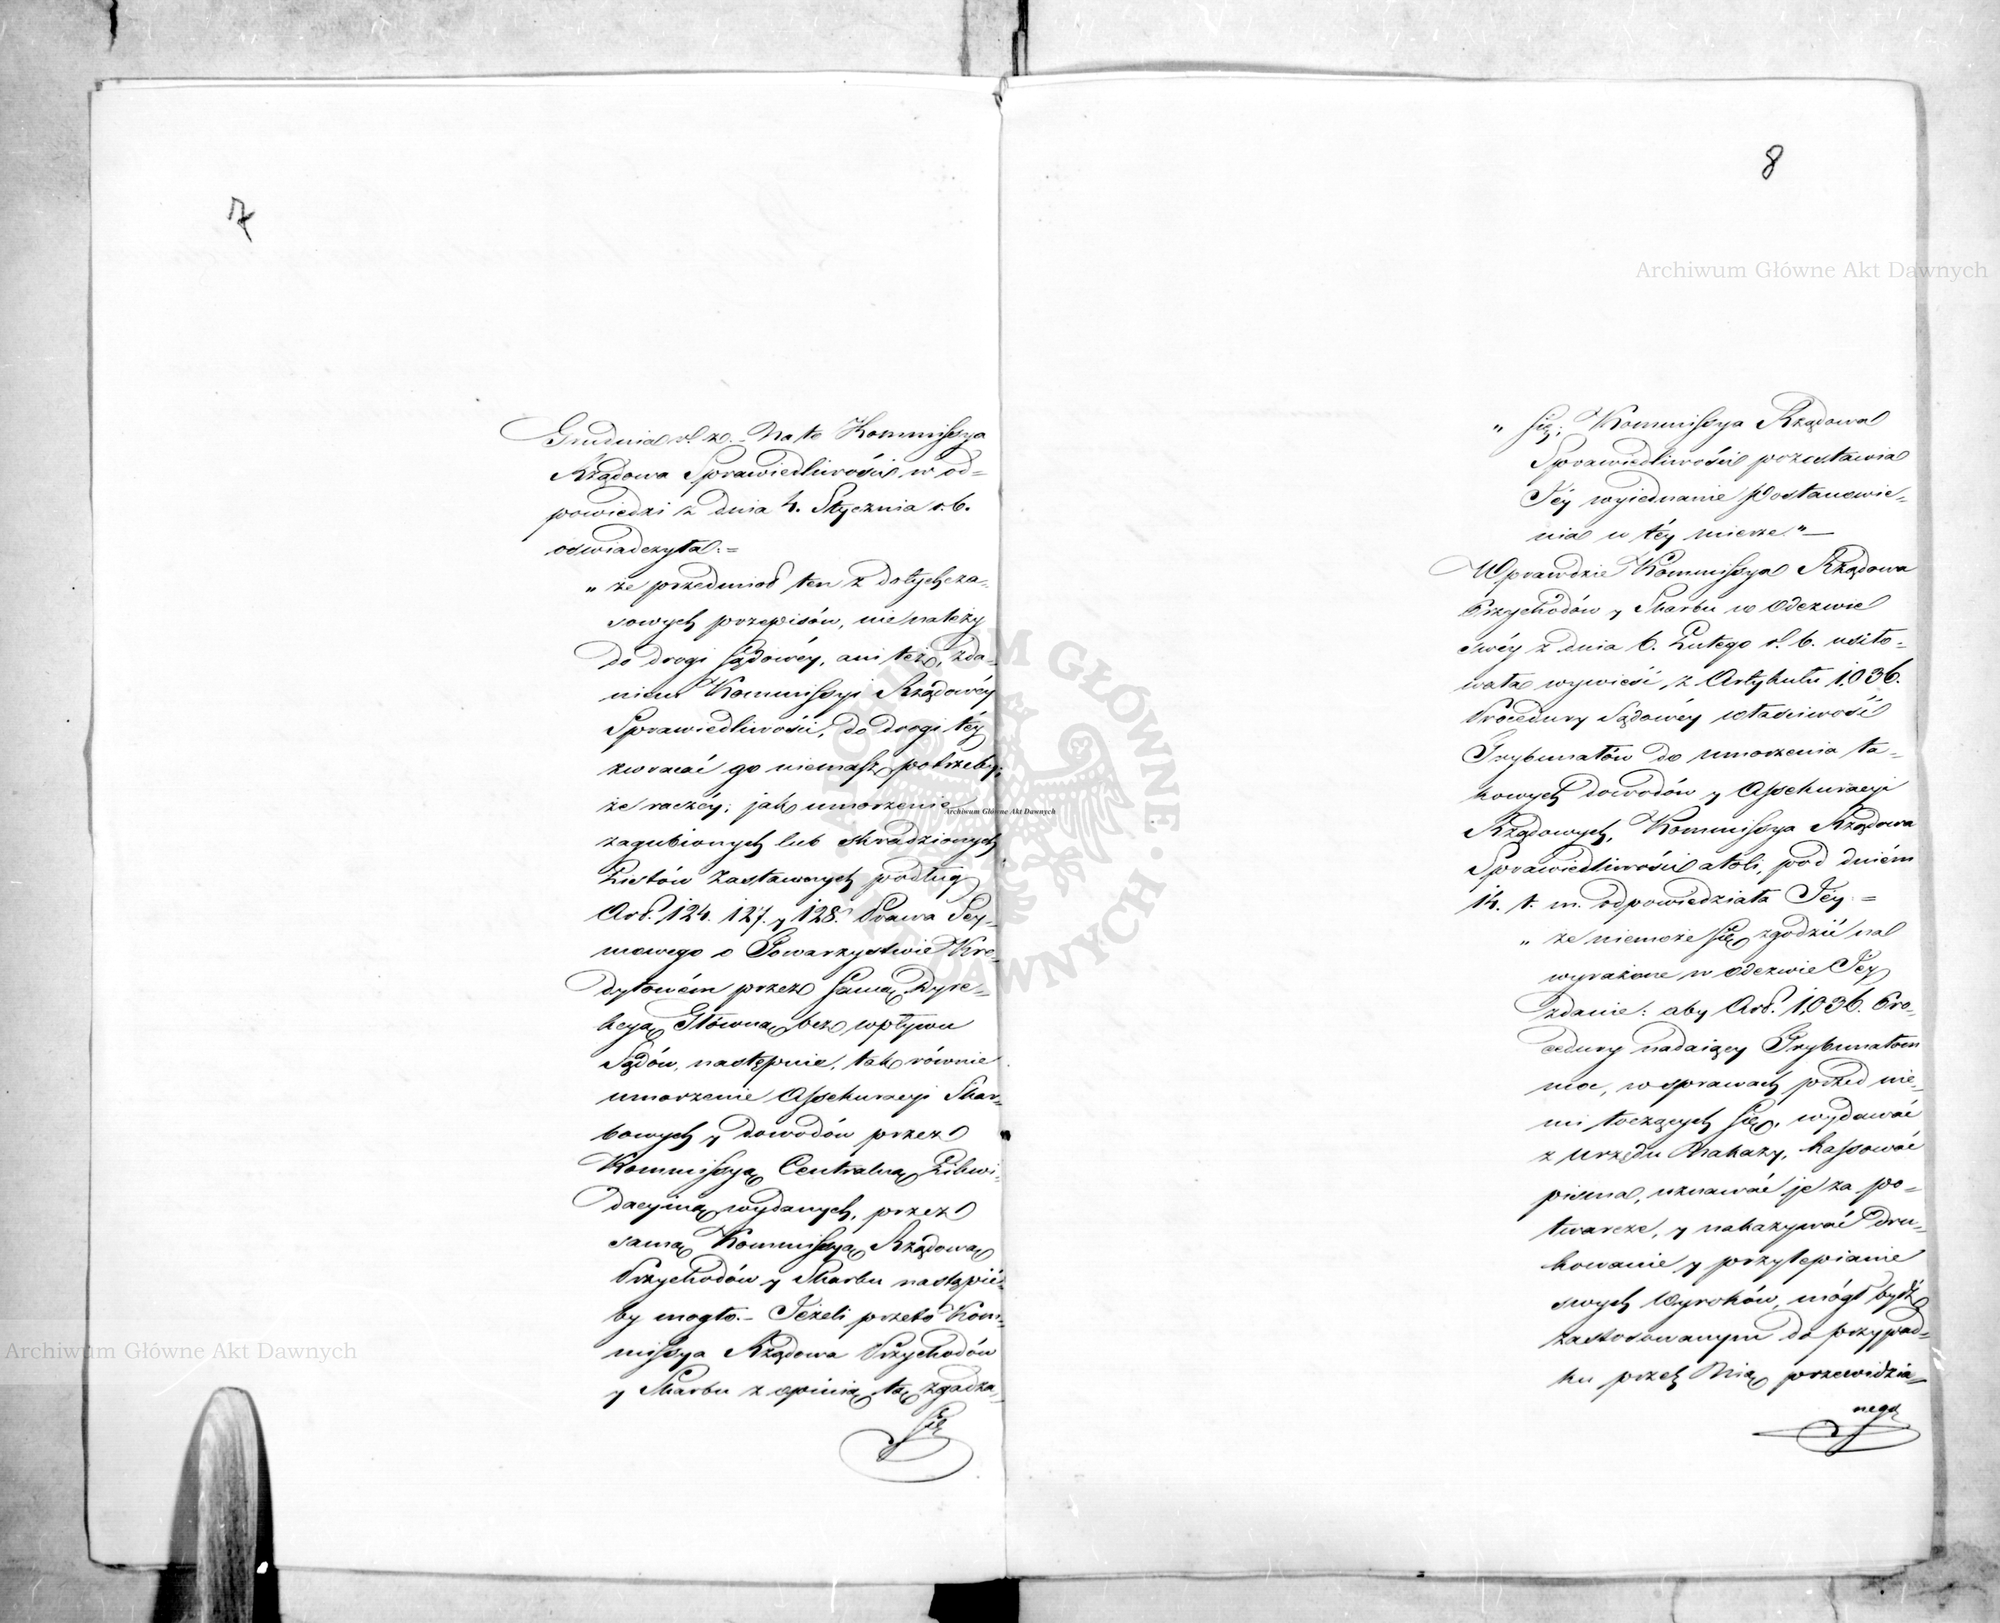 7
Grudnia r. z. - Na to Kommissya
Rządowa Sprawiedliwości w od=
powiedzi z dnia 4. Stycznia r. b.
oświadczyła: =
„ że przedmiot ten z dotychcza-
sowych przepisów, nie należy
do drogi sądowéy, ani téż, zda-
niem Kommissyi Rządowéy
Sprawiedliwości, do drogi téy
zwracać go niemasz potrzeby;
że raczéy; jak umorzenie
zagubionych lub skradzionych
Listów Zastawnych podług
Art. 124. 127. y 128. Prawa Sey-
mowego o Towarzystwie Kre-
dytowém przez samą Dyre-
kcyą Główną bez wpływu
Sądów, następnie, tak równie
umorzenie Assekuracyi Skar-
bowych y dowodów przez
Kommissyą Centralną Likwi-
dacyiną wydanych, przez
samą Kommissyą Rządową
Przychodów y Skarbu nastąpić-
by mogło. - Jeżeli przeto Kom-
missya Rządowa Przychodów
y Skarbu z opinią tą zgadza-
się
8
„ się; Kommissya Rządowa
Sprawiedliwości pozostawia
Jéy wyiednanie Postanowie-
nia w téy mierze." —
Wprawdzie Kommissya Rządowa
Przychodów y Skarbu w Odezwie
swéy z dnia 6. Lutego r. b. usiło-
wała wywieść, z Artykułu 1,036.
Procedury Sądowéy właściwość
Trybunałów do umorzenia ta-
kowych dowodów y Assekuracyi
Rządowych, Kommissya Rządowa
Sprawiedliwości atoli, pod dniém
14. t. m. odpowiedziała Jéy: =
„ że niemoże się zgodzić na
wyrażone w Odezwie Jéy
zdanie: aby Art. 1,036. Pro-
cedury nadaiący Trybunałom
moc, w sprawach przed nie-
mi toczących się, wydawać
z Urzędu Nakazy, kassować
pisma, uznawać je za po-
twarcze, y nakazywać dru-
kowanie y przylepianie
swych Wyroków, mógł bydź
zastosowanym do przypad-
ku przez Nią przewidzia-
nego
Archiwum Główne Akt Dawnych
Archiwum Główne Akt Dawnych
Archiwum Główne Akt Dawnych
ARCHIWUM GŁÓWNE AKT DAWNYCH